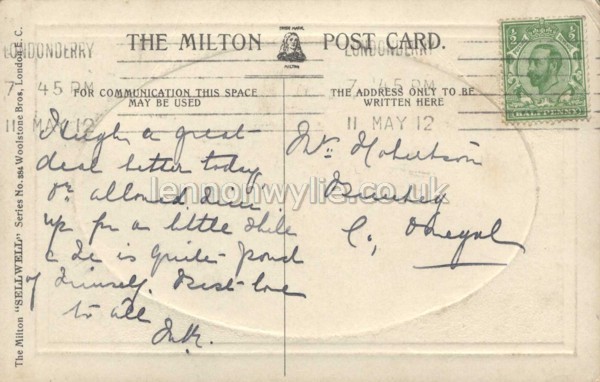 LONDONDERRY
7. 45 PM
11 MAY 12
THE MILTON POST CARD.
TRADE MARK
MILTON
LONDONDERRY
7. 45 PM
11 MAY 12
HALFPENNY
FOR COMMUNICATION THIS SPACE
MAY BE USED
THE ADDRESS ONLY TO BE
WRITTEN HERE
Hugh a great
deal better today
Dr. allowed him
up for a little while
& he is quite proud
of himself. Best love
to all
Mrs Robertson
Co. Donegal
lennonwylie.co.uk
The Milton "SELLWELL" Series No. Woolstone Bros., London E.C.